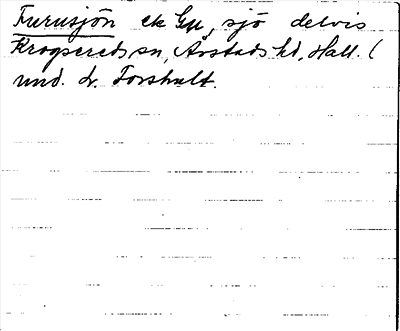 Furusjön ek Gu, sjö delvis
Krogsereds sn, Årstads hd, Hall. (
und. Lr. Forshult.